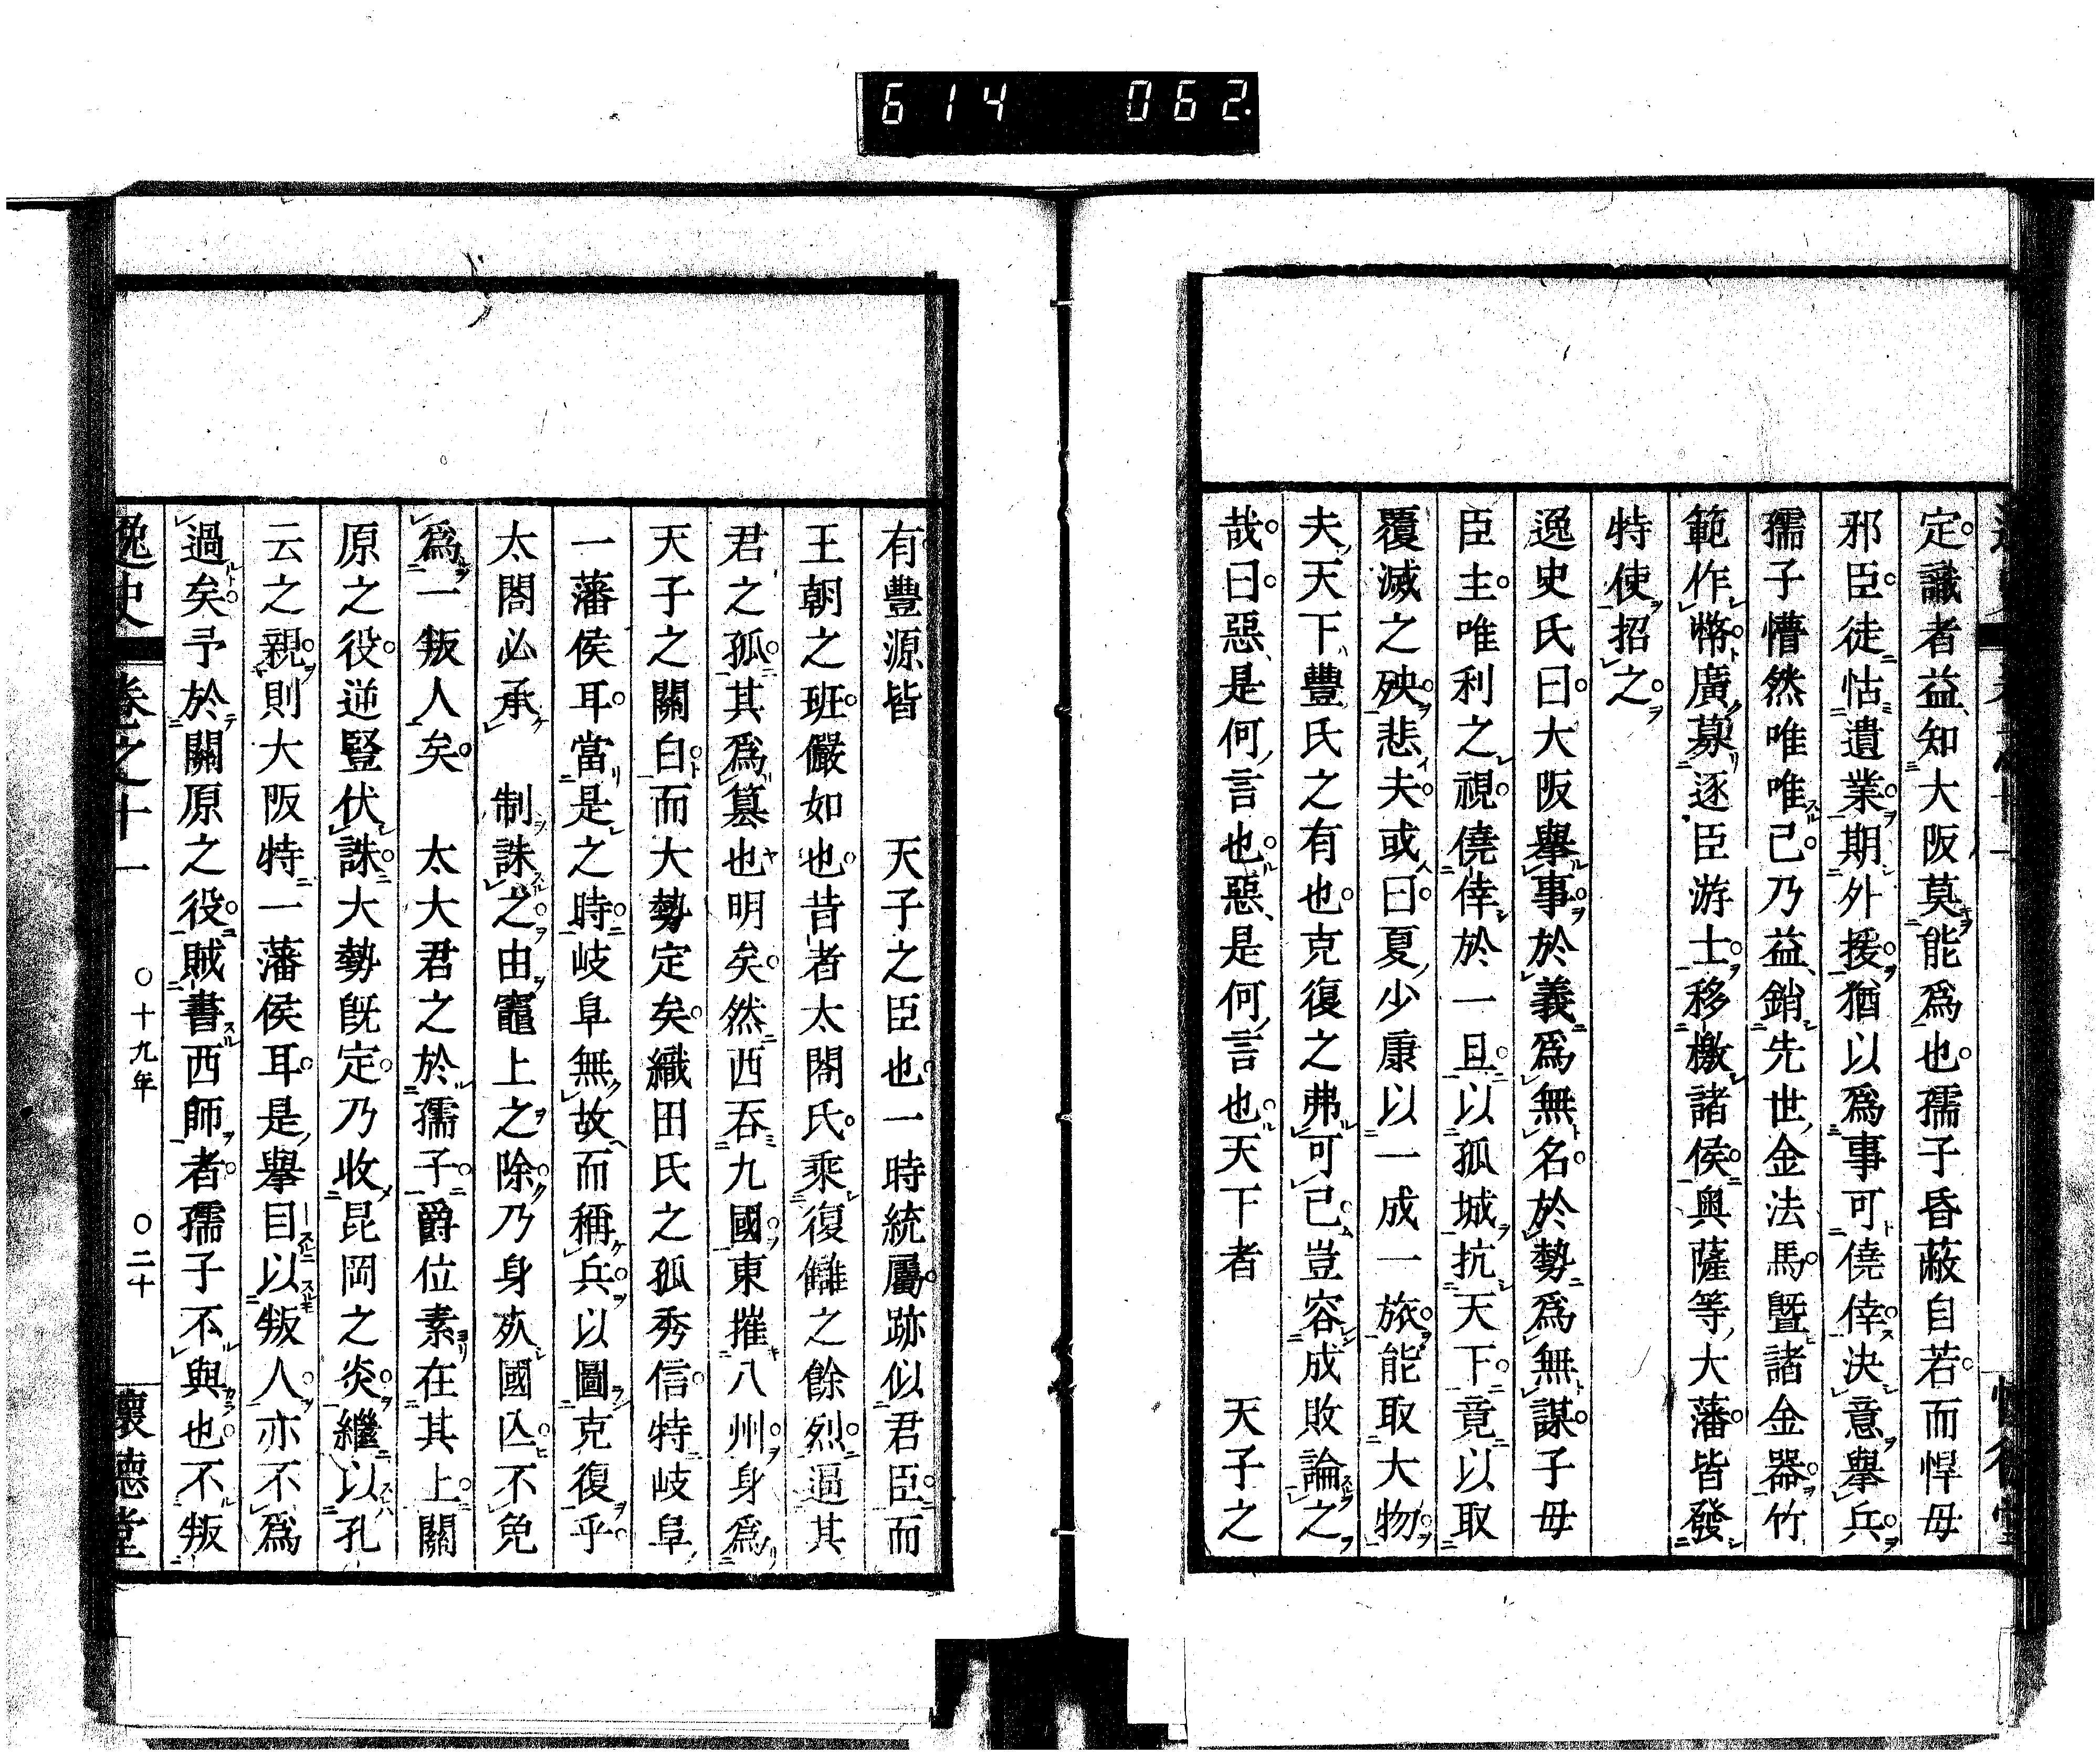 614 062
定。識者益知大阪莫能爲也。孺子昏蔽自若。而悍母
邪臣。徒怙遺業。期外援。猶以爲事可僥倖。決意擧兵。
孺子懵然唯唯已。乃益銷先世金法馬。曁諸金器。竹
範作幣。廣募逐臣游士。移檄諸侯。與薩等大藩。皆發
特使招之。
逸史氏曰。大阪擧事。於義爲無名。於勢爲無謀。子母
臣主。唯利之視。僥倖於一旦。以孤城抗天下。竟以取
覆滅之殃。悲夫。或曰。夏少康以一成一旅。能取大物。
夫天下豐氏之有也。克復之弗可已。豈容成敗論之
哉。曰。惡是何言也。惡是何言也。天下者 天子之
有。豐源皆 天子之臣也。一時統屬。跡似君臣。而
王朝之班。儼如也。昔者太閤氏。乘復讎之餘烈。逼其
君之孤。其爲簒也明矣。然西吞九國。東摧八州。身爲
天子之關白。而大勢定矣。織田氏之孤秀信。特岐阜
一藩侯耳。當是之時。岐阜無故而稱兵。以圖克復乎。
太閤必承 制誅之。由竈上之除。乃身夾國亾。不免
爲一叛人矣。 太大君之於孺子。爵位素在其上。關
原之役。逆豎伏誅。大勢旣定。乃收昆岡之炎。繼以孔
云之親。則大阪特一藩侯耳。是擧目以叛人。亦不爲
過矣。予於關原之役。賊書西師者。孺子不與也。不叛
逸史 卷之十一 〇十九年 〇二十 懷德堂